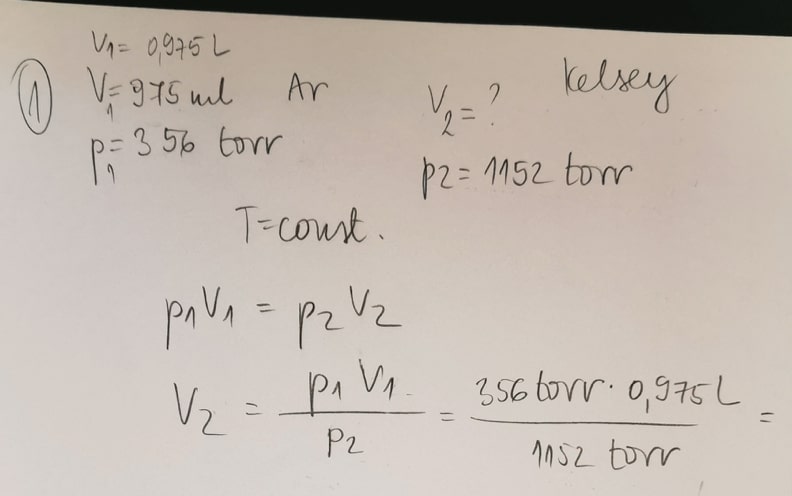 V1= 0,975 L
① V1= 975 ml Ar V2= ? Kelsey
p1= 356 torr p2= 1152 torr
T=const.
p1V1 = p2V2
V2 = p1 V1 / p2 = 356 torr · 0,975 L / 1152 torr =